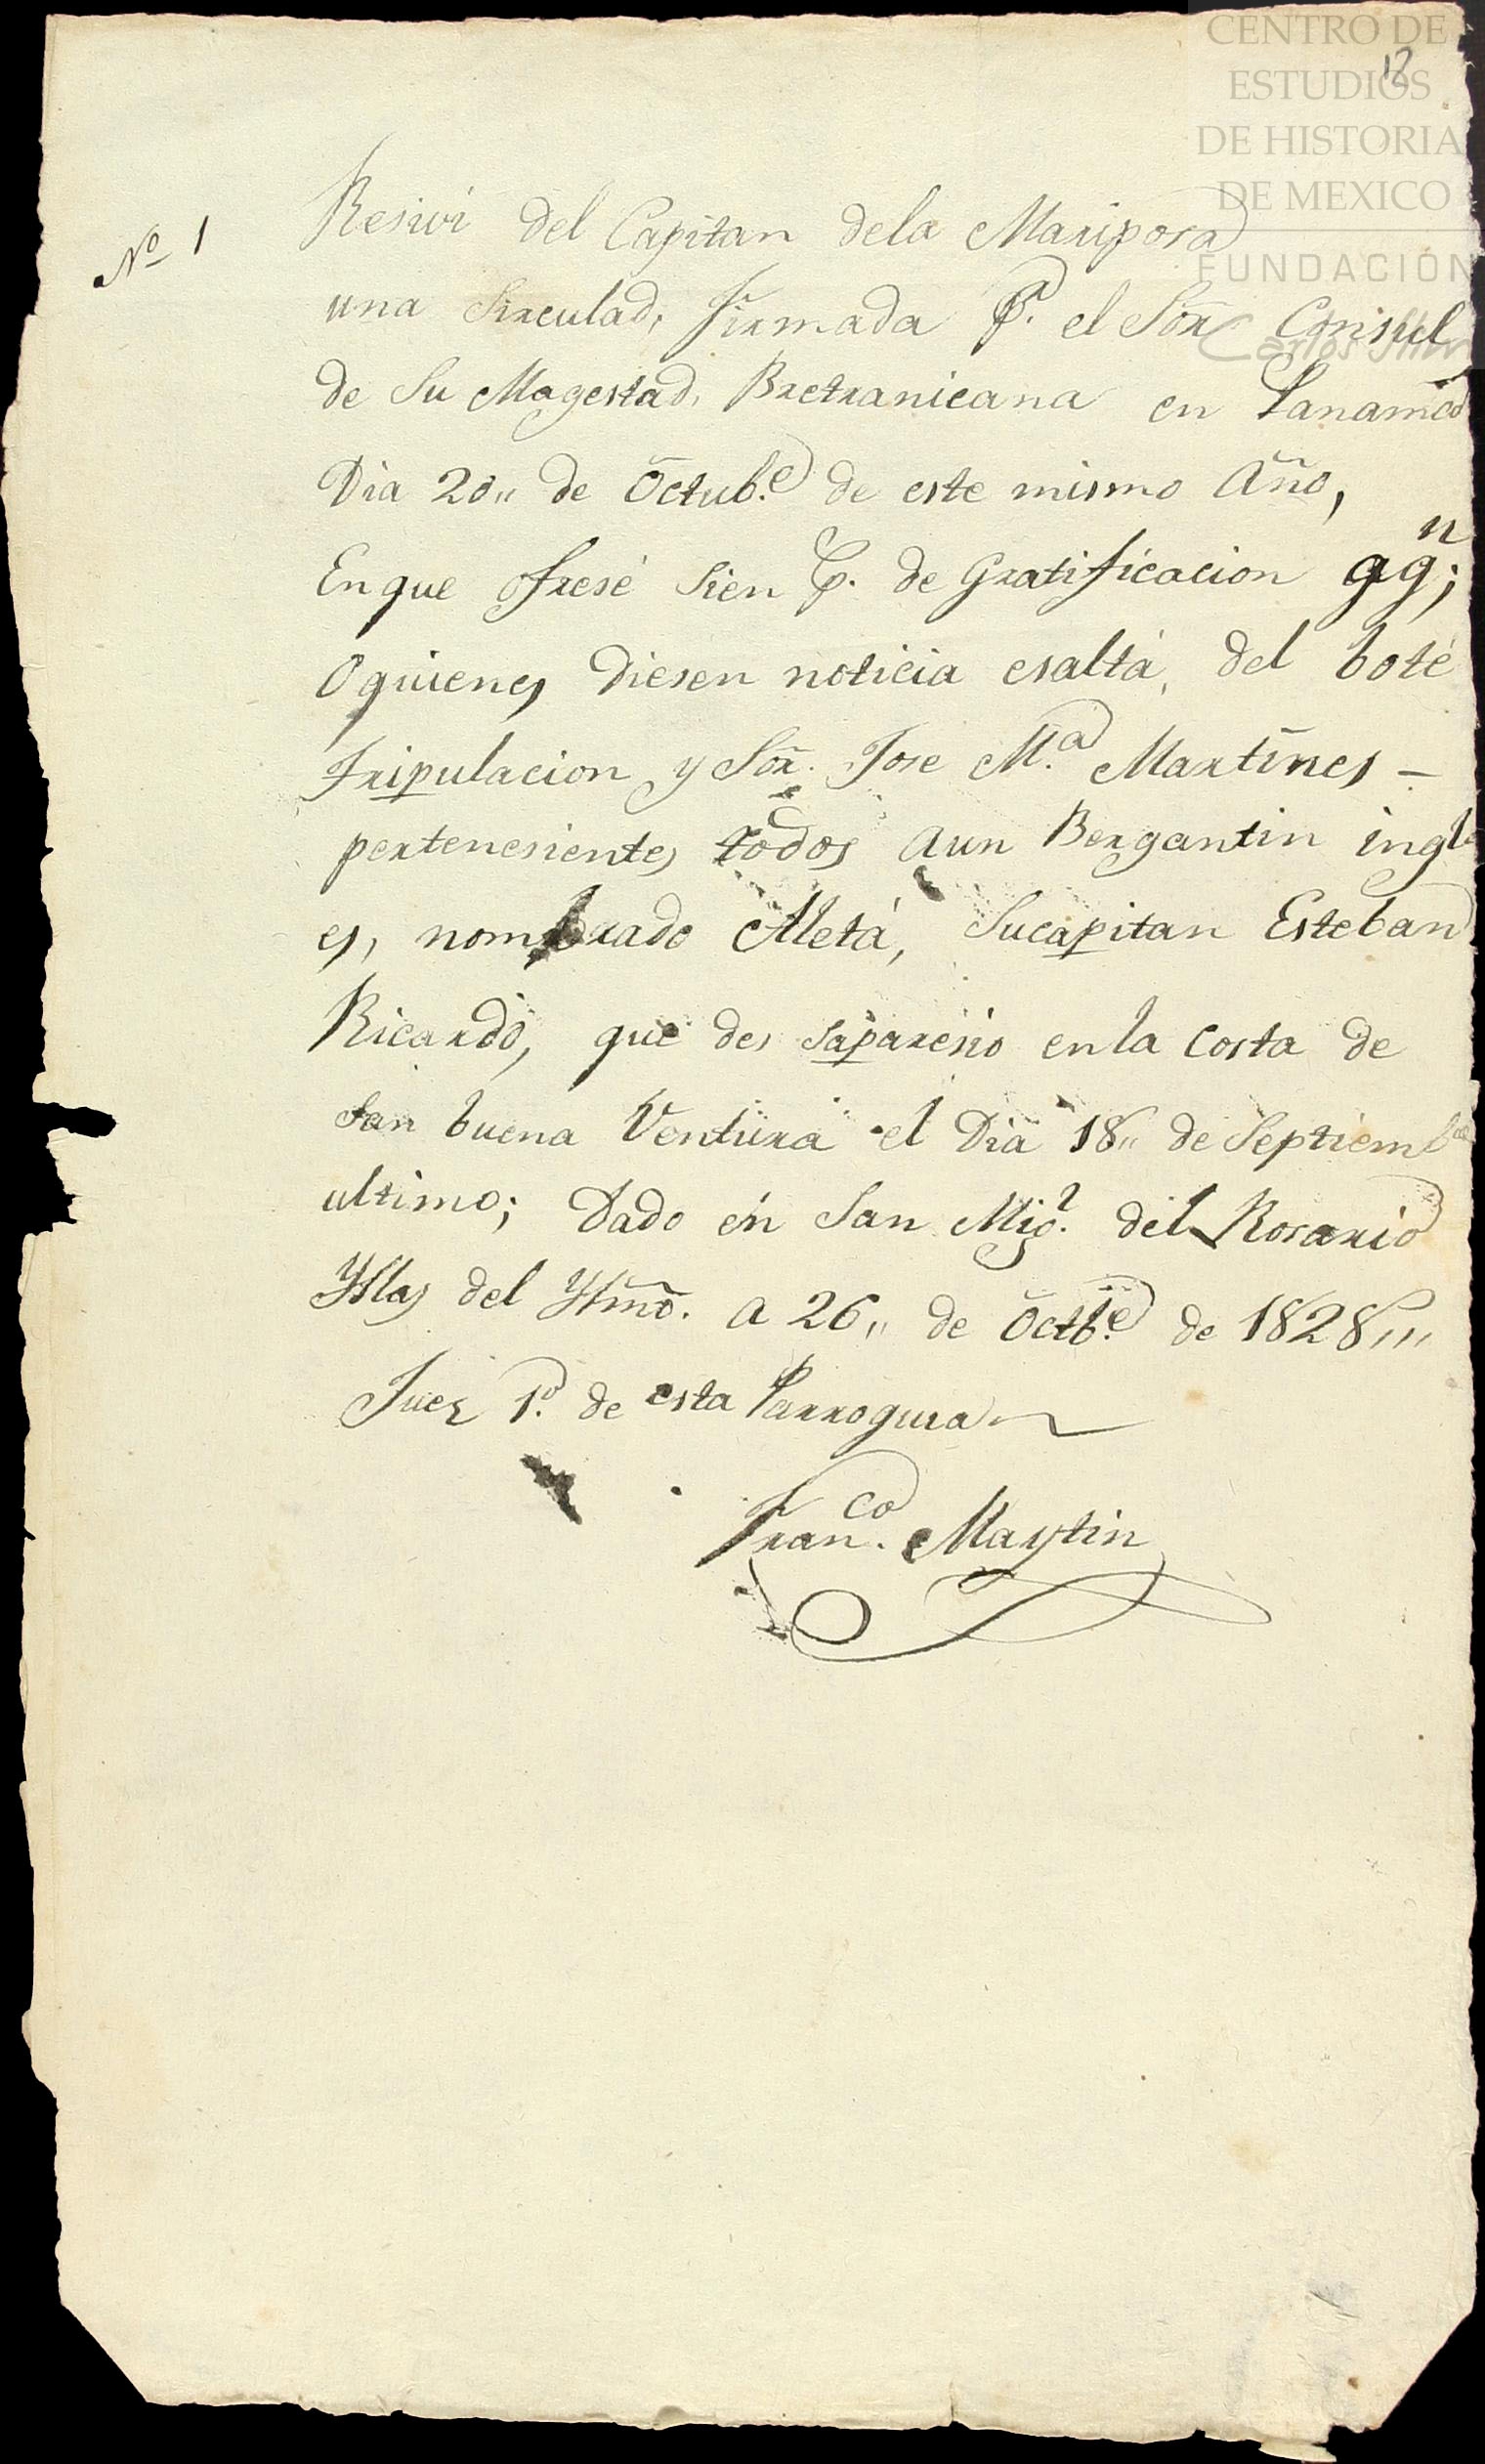 CENTRO DE
ESTUDIOS
DE HISTORIA
DE MEXICO
FUNDACIÓN
Carlos Slim
12
Nº 1
Resivi del Capitan dela Mariposa
una Sirculad, firmada P.r el Sōr Consul
de Su Magestad, Bretranicana en Panamá
Dia 20,, de Octub.e de este mismo Año,
En que ofresé sien p. de Gratificacion aq.n;
O quienes diesen noticia esaltá, del boté
tripulacion y Sōr. Jose M.a Martines –
pertenesientes todos aun Bergantin ingl
es, nombrado Aletá, Sucapitan Esteban
Ricardo, que des saparesio enla costa de
San buena Ventura el Dia 18,, de Septiemb.e
ultimo; Dado en San Mig.l del Rosario
Yslas del Ysmō. a 26,, de Octb.e de 1828,,,
Juez 1.o de esta Parroquia
Fran.co Maytin